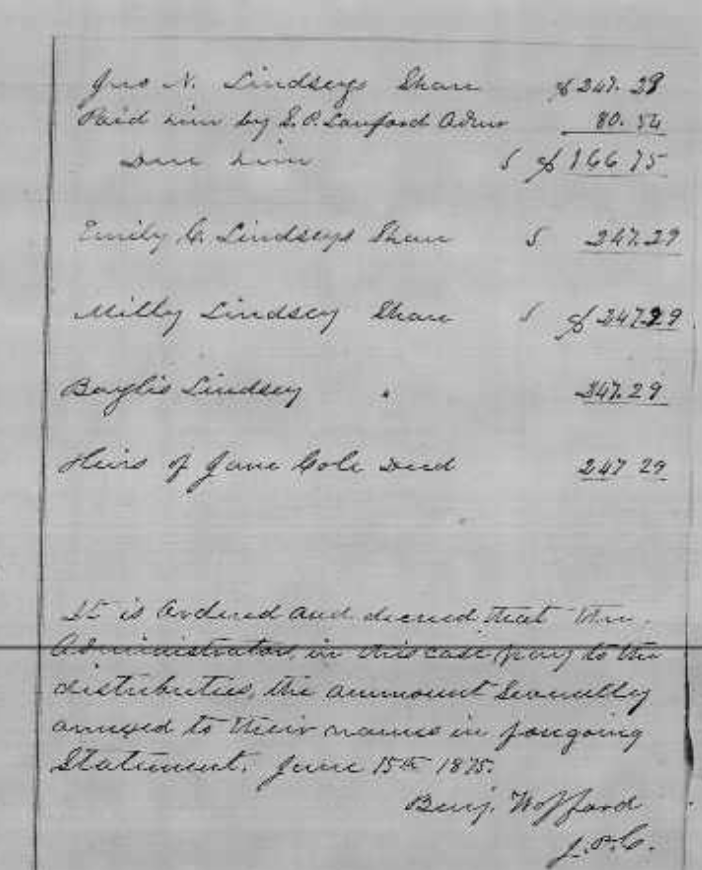 Jno N. Lindseys Share $247.29
Paid him by S. P. Lanford Admr 80.54
Due him $ $166 75
Emily C. Lindseys Share $ 247.29
Milly Lindsey Share $ $247.29
Baylis Lindsey " 247.29
Heirs of Jane Cole Decd 247 29
It is Ordered and decreed that the
Administrators, in this case pay to the
distributies, the ammount Severally
annexed to their names in forgoing
Statement. June 15th 1875.
Benj. Wofford
J.P.C.